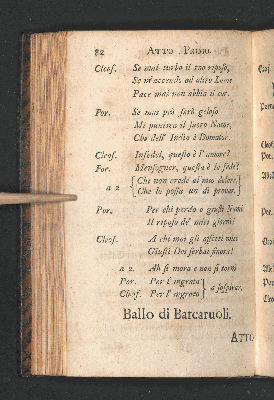 82 ATTO PRIMO.
Cleof. Se mai turbo il tuo riposo,
Se m'accendo ad altro Lume
Pace mai non abbia il cor.
Por. Se mai più sarò geloso
Mi punisca il sacro Nume,
Che dell' India è Domator.
Cleof. Infedel, questo è l'amore?
Por. Mensogner, questa è la fede?
a 2 Chi non crede al mio dolore,
Che lo possa un dì provar.
Por. Per chi perdo o giusti Numi
Il riposo de' miei giorni!
Cleof. A chi mai gli affetti miei
Giusti Dei serbai finora!
a 2. Ah si mora e non si torni
Por. Per l'ingrata
Cleof. Per l'ingrato a sospirar.
Ballo di Barcaruoli.
ATTO